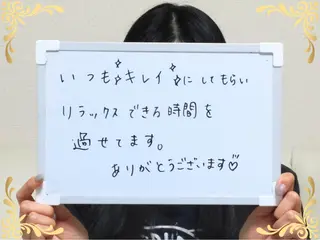 いつも✧キレイ✧にしてもらい
リラックスできる時間を
過せてます。
ありがとうございます♡